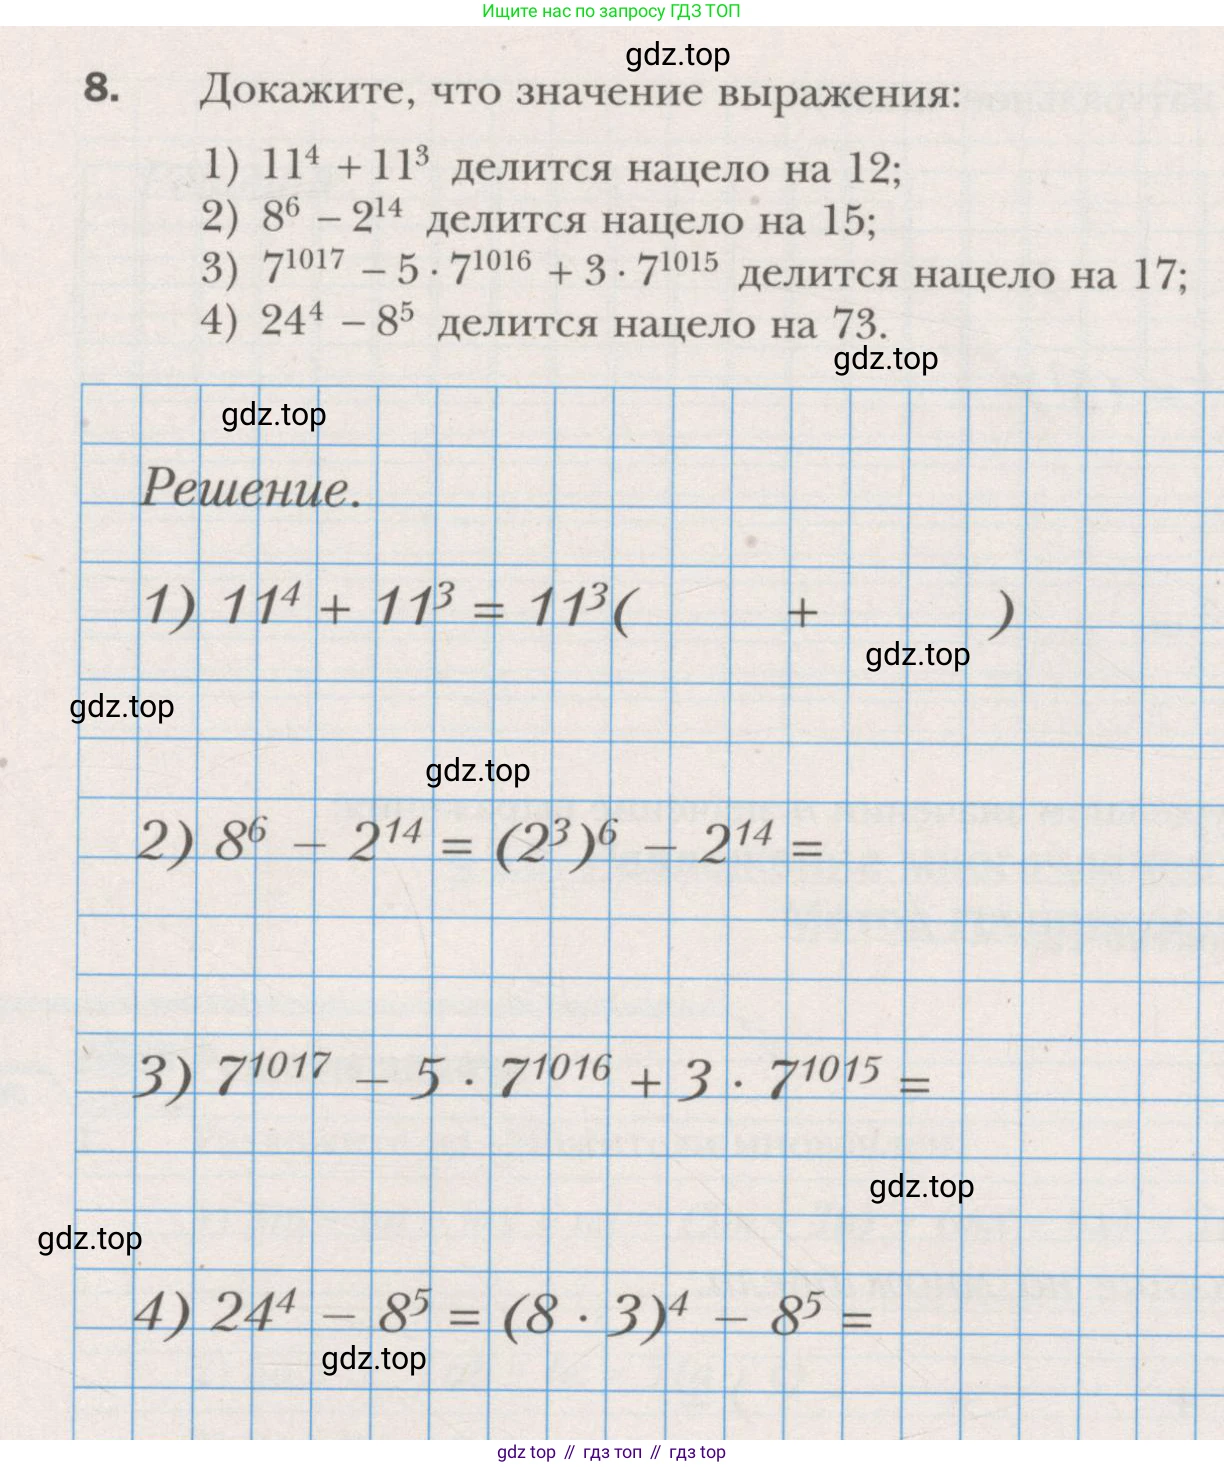 Ищите нас по запросу ГДЗ ТОП
gdz.top
8. Докажите, что значение выражения:
1) 11⁴ + 11³ делится нацело на 12;
2) 8⁶ − 2¹⁴ делится нацело на 15;
3) 7¹⁰¹⁷ − 5 · 7¹⁰¹⁶ + 3 · 7¹⁰¹⁵ делится нацело на 17;
4) 24⁴ − 8⁵ делится нацело на 73.
gdz.top
gdz.top
Решение.
1) 11⁴ + 11³ = 11³( + )
gdz.top
gdz.top
gdz.top
2) 8⁶ − 2¹⁴ = (2³)⁶ − 2¹⁴ =
3) 7¹⁰¹⁷ − 5 · 7¹⁰¹⁶ + 3 · 7¹⁰¹⁵ =
gdz.top
gdz.top
4) 24⁴ − 8⁵ = (8 · 3)⁴ − 8⁵ =
gdz.top
gdz top // гдз топ // гдз top